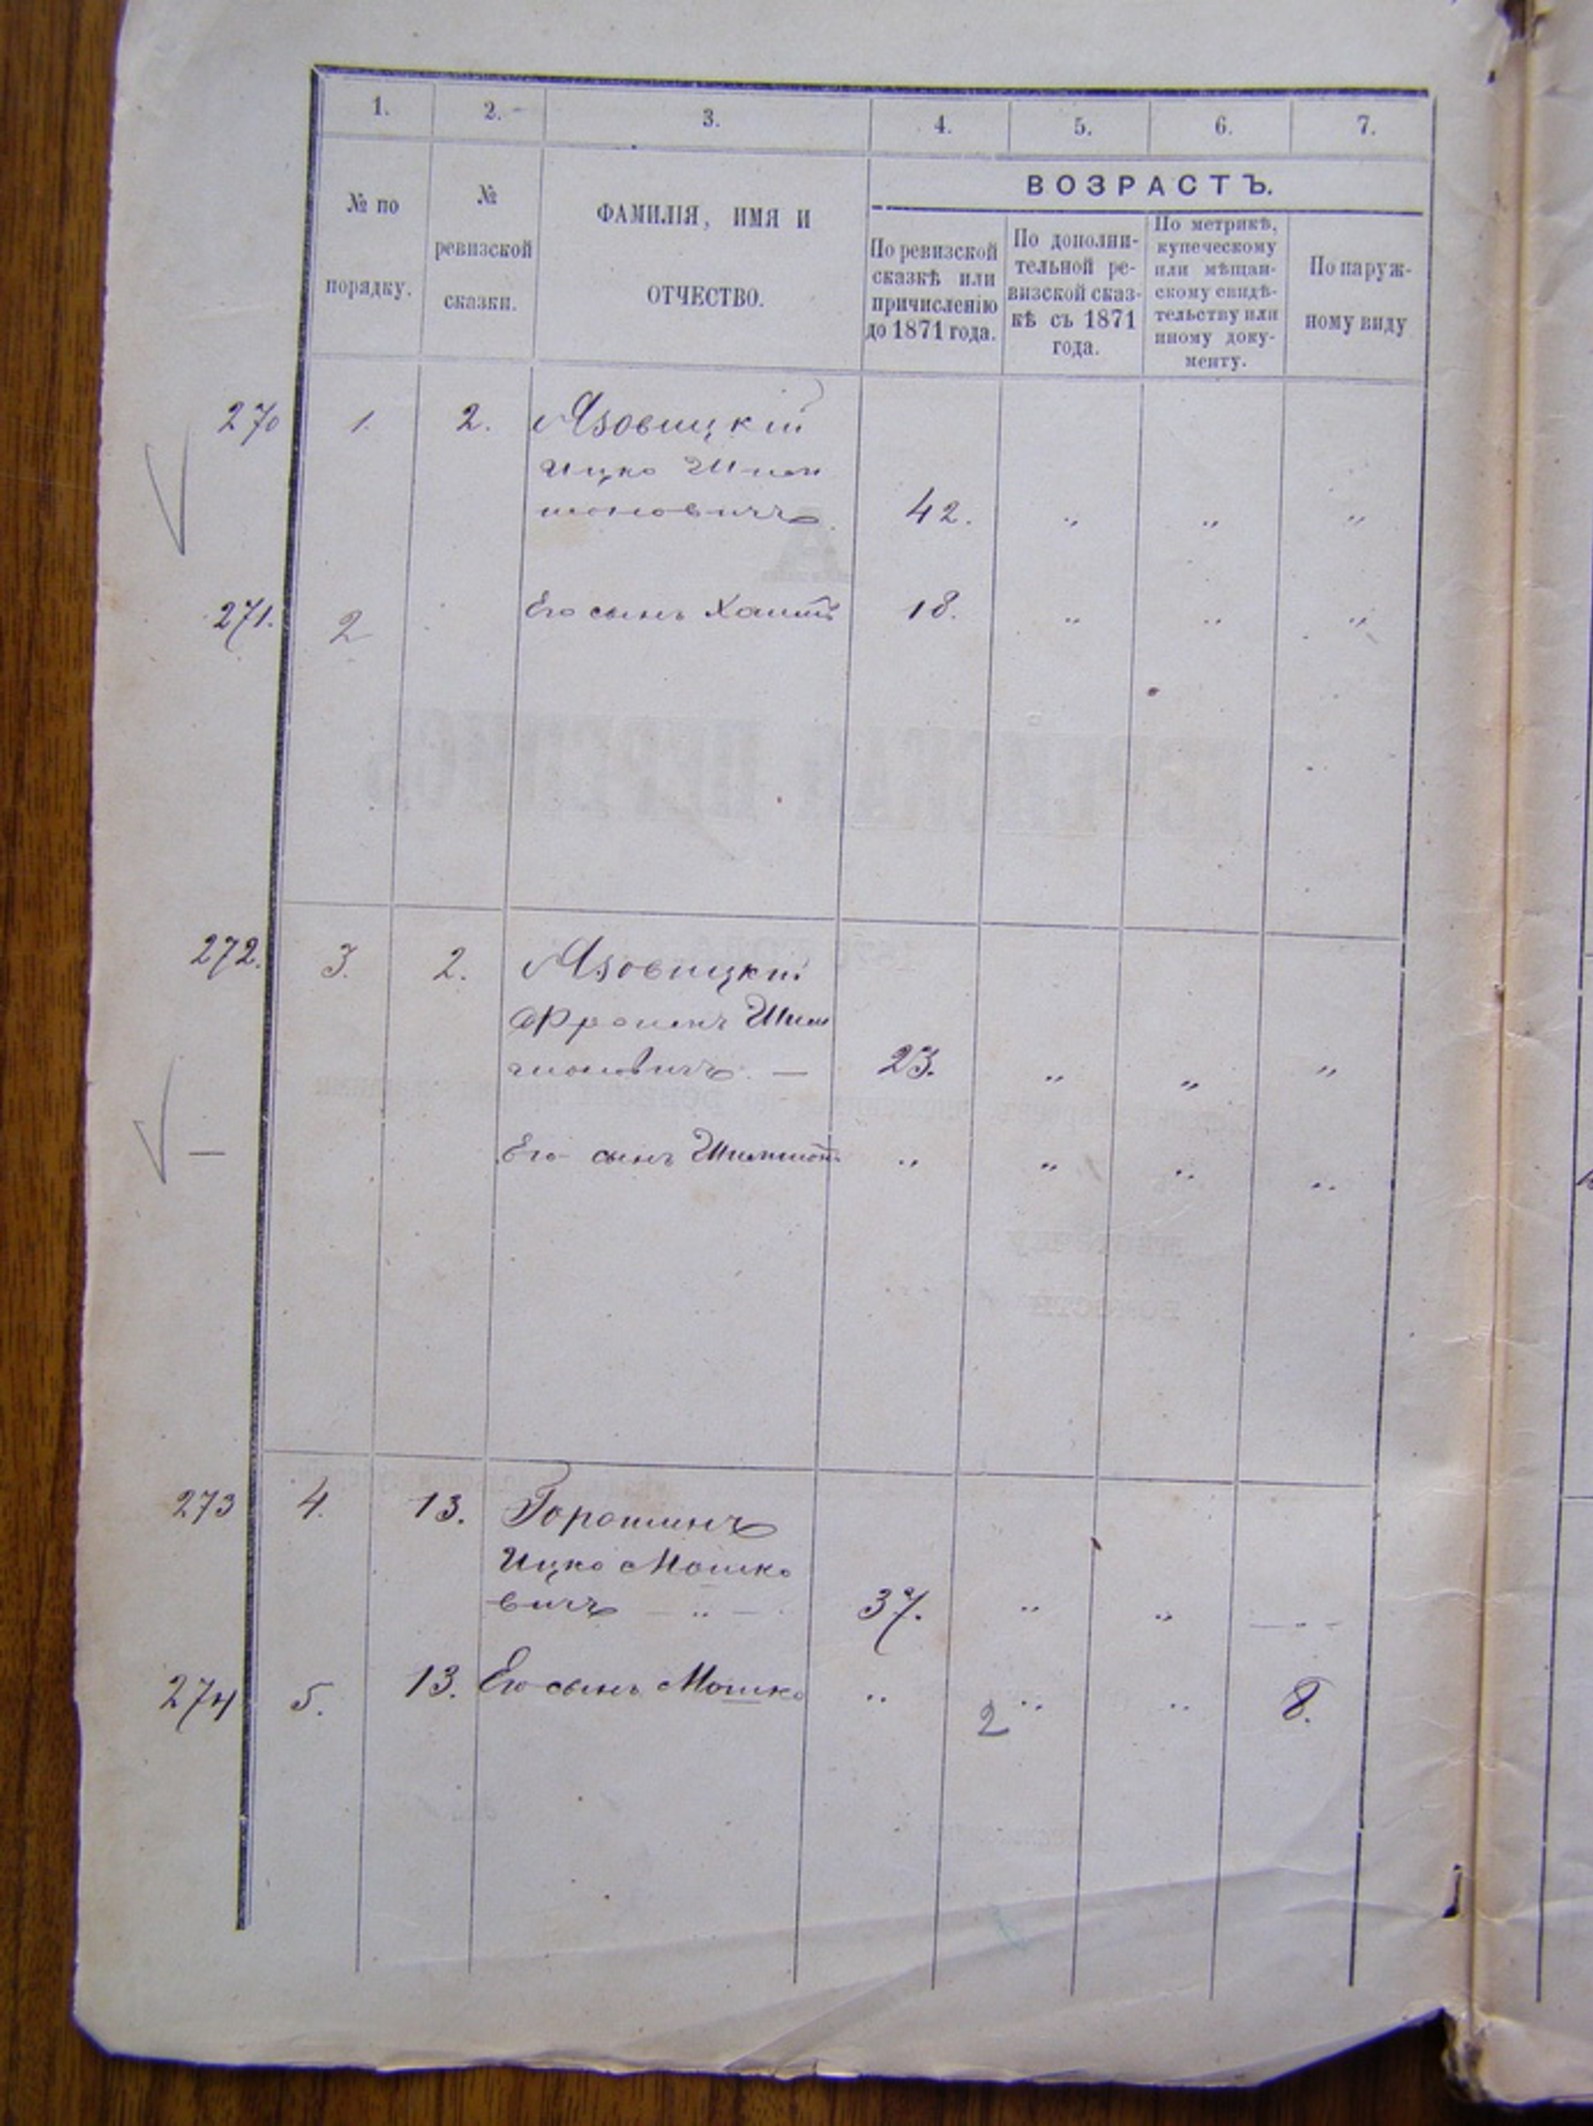 1. 2. 3. 4. 5. 6. 7.
№ по
порядку.
№
ревизской
сказки.
ФАМИЛІЯ, ИМЯ И
ОТЧЕСТВО.
ВОЗРАСТЪ.
По ревизской
сказкѣ или
причисленію
до 1871 года.
По дополни-
тельной ре-
визской сказ-
кѣ съ 1871
года.
По метрикѣ,
купеческому
или мѣщан-
скому свидѣ-
тельству или
иному доку-
менту.
По наруж-
ному виду
270 1. 2. Язовицкій
Ицко Шим
моновичъ. 42. „ „ „
271. 2 Его сынъ Хаимъ 18. „ „ „
272. 3. 2. Язовицкій
Фроимъ Шим
моновичъ. — 23. „ „ „
— Его сынъ Шимшонъ „ „ „ „
273 4. 13. Горошинъ
Ицко Мошко
вичъ — „ — 37. „ „ — „ —
274 5. 13. Его сынъ Мошко „ 2 „ „ 8.